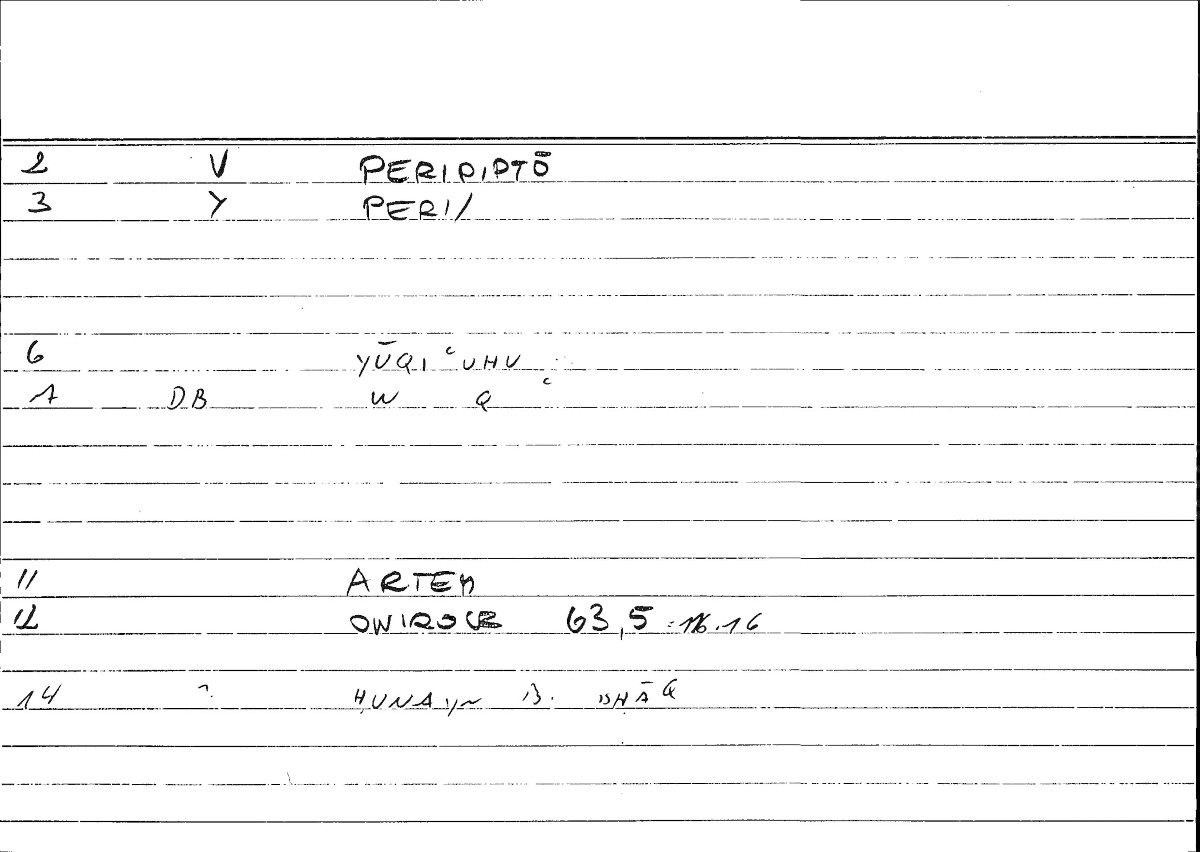 2 V PERIPIPTŌ
3 Y PERI/
6 YŪQIʿUHU
A DB W Q ʿ
11 ARTEM
12 ONIROCR 63,5 : 16.16
14 HUNAYN B. ISHĀQ